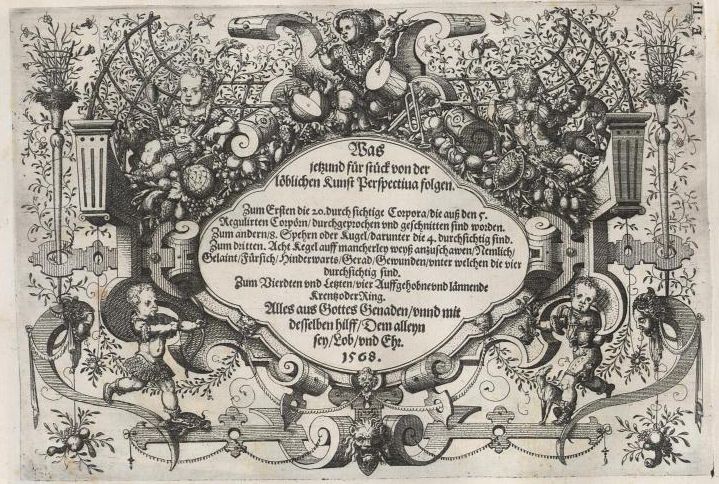 Was
jetzund für stück von der
löblichen Kunst Perspectiua folgen.
Zum Ersten die 20. durch sichtige Corpora/die auß den 5.
Regulirten Corporn/durchgeprochen vnd geschnitten sind worden.
Zum andern/8. Sphern oder Kugel/darunter die 4. durchsichtig sind.
Zum dritten. Acht Kegel auff mancherley weyß anzuschawen/Nemlich/
Gelaint/Fürsich/Hinderwarts/Gerad/Gewunden/vnter welchen die vier
durchsichtig sind.
Zum Vierdten vnd Letzten/vier Auffgehobne vnd lännende
Krentz oder Ring.
Alles aus Gottes Genaden/vnnd mit
desselben hilff/Dem alleyn
sey/Lob/vnd Ehr.
1568.